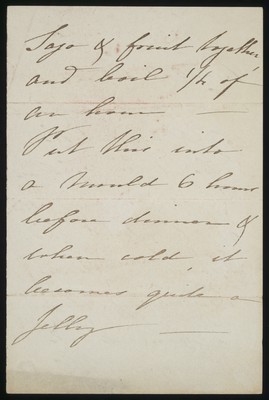 Sago & fruit together
and boil 1/4 of
an hour —
Put this into
a mould 6 hours
before dinner &
when cold, it
becomes quite a
Jelly —